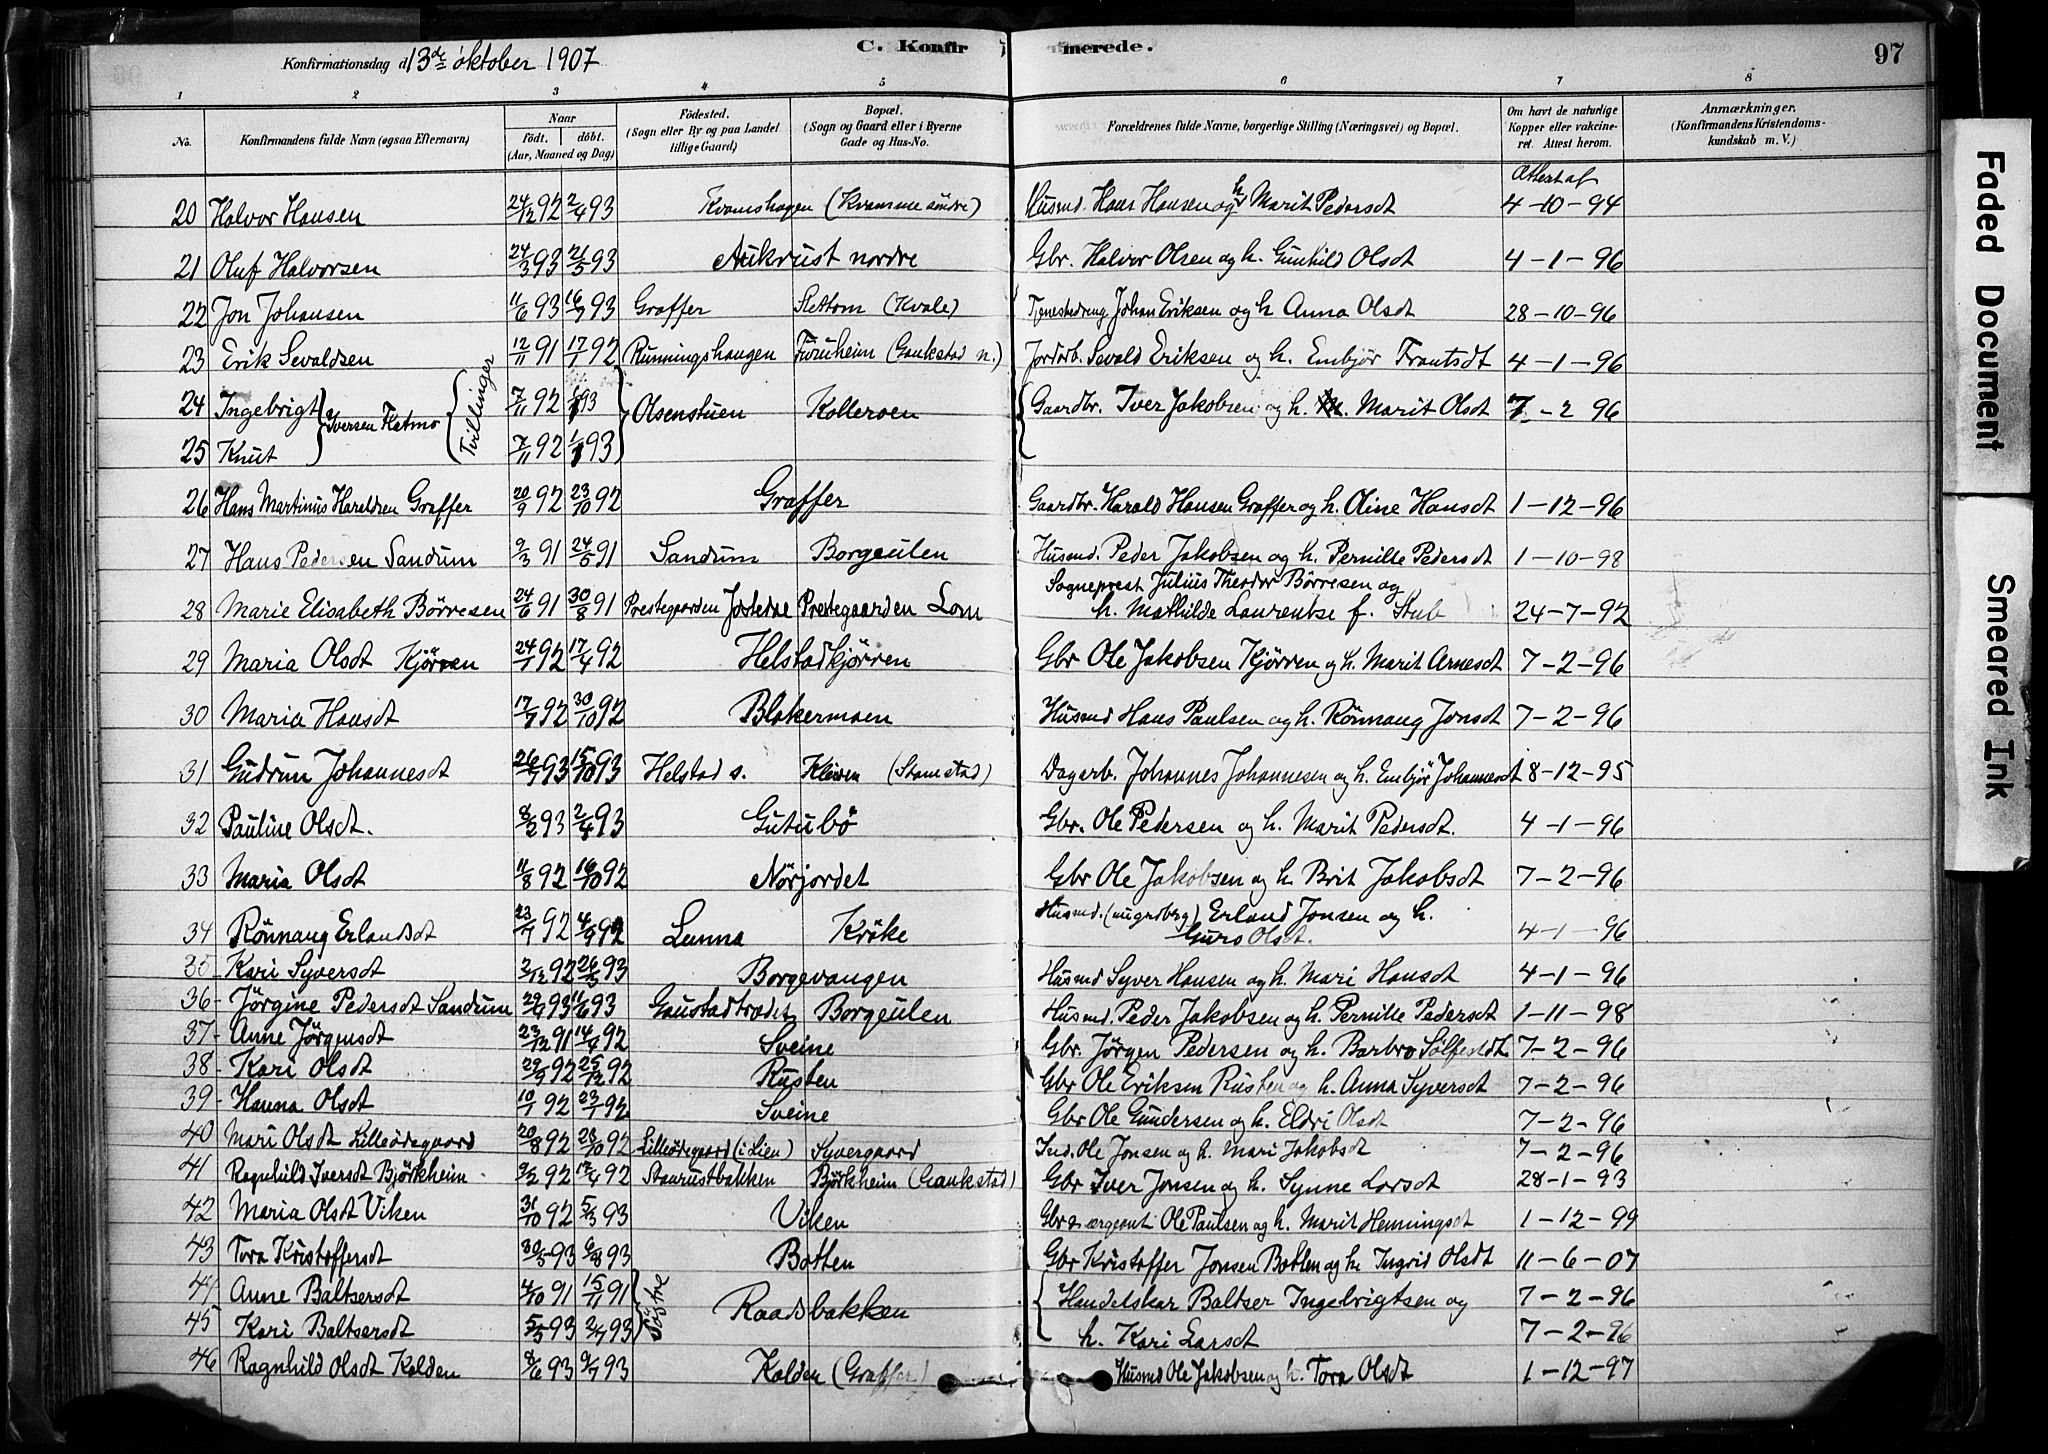 C. Konfirmerede.
97
Konfirmationsdag d 13de oktober 1907
1 2 3 4 5 6 7 8
No. Konfirmandens fulde Navn (ogsaa Efternavn) Naar Födt. döbt. (Aar, Maaned og Dag) Födested. (Sogn eller By og paa Landet tillige Gaard) Bopæl. (Sogn og Gaard eller i Byerne Gade og Hus-No. Forældrenes fulde Navne, borgerlige Stilling (Næringsvei) og Bopæl. Om havt de naturlige Kopper eller vakcineret. Attest herom. Anmærkninger. (Konfirmandens Kristendomskundskab m. V.)
Attest af
20 Halvor Hansen 24/12 92 2/4 93 Kvamshagen (Kvamme söndre) Husmd. Hans Hansen og h Marit Pedersdt 4-10-94
21 Oluf Halvorsen 24/3 93 21/5 93 Aukrust nordre Gbr. Halvor Olsen og h. Gunhild Olsdt 4-1-96
22 Jon Johansen 11/6 93 16/7 93 Graffer Slettom (Kvale) Tjenestedreng Johan Eriksen og h Anna Olsdt 28-10-96
23 Erik Sevaldsen 12/11 91 17/1 92 Runningshaugen Furuheim (Gaukstad n.) Jordarb. Sevald Eriksen og h. Embjör Frantsdt 4-1-96
24 Ingebrigt } Iversen { Tvillinger 7/11 92 1/1 93 } Olsenstuen Kolleroen { Gaardbr. Iver Jakobsen og h. Marit Olsdt 7-2 96
25 Knut 7/11 92 1/1 93
26 Hans Martinus Haraldsen Graffer 20/9 92 23/10 92 Graffer Gaardbr. Harald Hansen Graffer og h. Oline Hansdt 1-12-96
27 Hans Pedersen Sandum 9/3 91 24/5 91 Sandum Borgeulen Husmd. Peder Jakobsen og h. Pernille Pedersdt 1-10-98
28 Marie Elisabeth Börresen 24/6 91 30/8 91 Prestegaarden Jostedne Prestegaarden Lom Sogneprest Julius Theodor Börresen og
h. Mathilde Laurentse f. Stub 24-7-92
29 Maria Olsdt Kjörren 24/1 92 17/4 92 Helstadkjörren Gbr Ole Jakobsen Kjörren og h. Marit Arnesdt 7-2-96
30 Maria Hansdt 17/7 92 30/10 92 Blakermoen Husmd Hans Paulsen og h. Rönnaug Jonsdt 7-2-96
31 Gudrun Johannesdt 26/7 93 15/10 93 Helstad s. Kleiven (Stamstad) Dagarb. Johannes Johannesen og h. Embjör Johannesdt 8-12-95
32 Pauline Olsdt. 8/2 93 2/4 93 Gutubö Gbr. Ole Pedersen og h. Marit Pedersdt. 4-1-96
33 Maria Olsdt 11/8 92 16/10 92 Nörjordet Gbr Ole Jakobsen og h. Brit Jakobsdt 7-2-96
34 Rönnaug Erlandsdt 23/7 92 4/9 92 Lunna Kröke Husmd. Erland Jonsen og h.
Guro Olsdt. 4-1-96
35 Kari Syversdt 2/12 92 26/3 93 Borgevangen Husmd Syver Hansen og h. Mari Hansdt 4-1-96
36 Jörgine Pedersdt Sandum 29/4 93 11/6 93 Gaustadtrædet Borgeulen Husmd. Peder Jakobsen og h. Pernille Pedersdt 1-11-98
37 Anne Jörgensdt 23/12 91 14/4 92 Sveine Gbr. Jörgen Pedersen og h. Barbro Sölfestdt 7-2-96
38 Kari Olsdt 29/9 92 25/12 92 Rusten Gbr Ole Eriksen Rusten og h. Anna Syversdt 7-2-96
39 Hanna Olsdt 10/1 92 23/1 92 Sveine Gbr Ole Gundersen og h. Eldri Olsdt 7-2-96
40 Mari Olsdt Lilleödegaard 20/8 92 28/10 92 Lilleödegaard (i Lien) Syvergaard Ind. Ole Jonsen og h. Mari Jakobsdt 7-2-96
41 Ragnhild Iversdt Björkheim 9/2 92 12/4 92 Staurustbakken Björkheim (Gaukstad) Gbr Iver Jonsen og h. Synne Larsdt 28-1-93
42 Maria Olsdt Viken 31/10 92 5/3 93 Viken Gbr sergeant Ole Paulsen og h. Marit Henningsdt 1-12-99
43 Tora Kristoffersdt 30/5 93 6/8 93 Botten Gbr Kristoffer Jonsen Botten og h. Ingrid Olsdt 11-6-07
44 Anne Baltsersdt 4/10 91 15/11 91 } Söstre Raadsbakken { Handelskar Baltser Ingebrigtsen og 7-2-96
45 Kari Baltsersdt 5/5 93 2/7 93 h. Kari Larsdt 7-2-96
46 Ragnhild Olsdt Kolden 8/6 93 9/7 93 Kolden (Graffer) Husmd Ole Jakobsen og h. Tora Olsdt 1-12-97
Faded Document
Smeared Ink